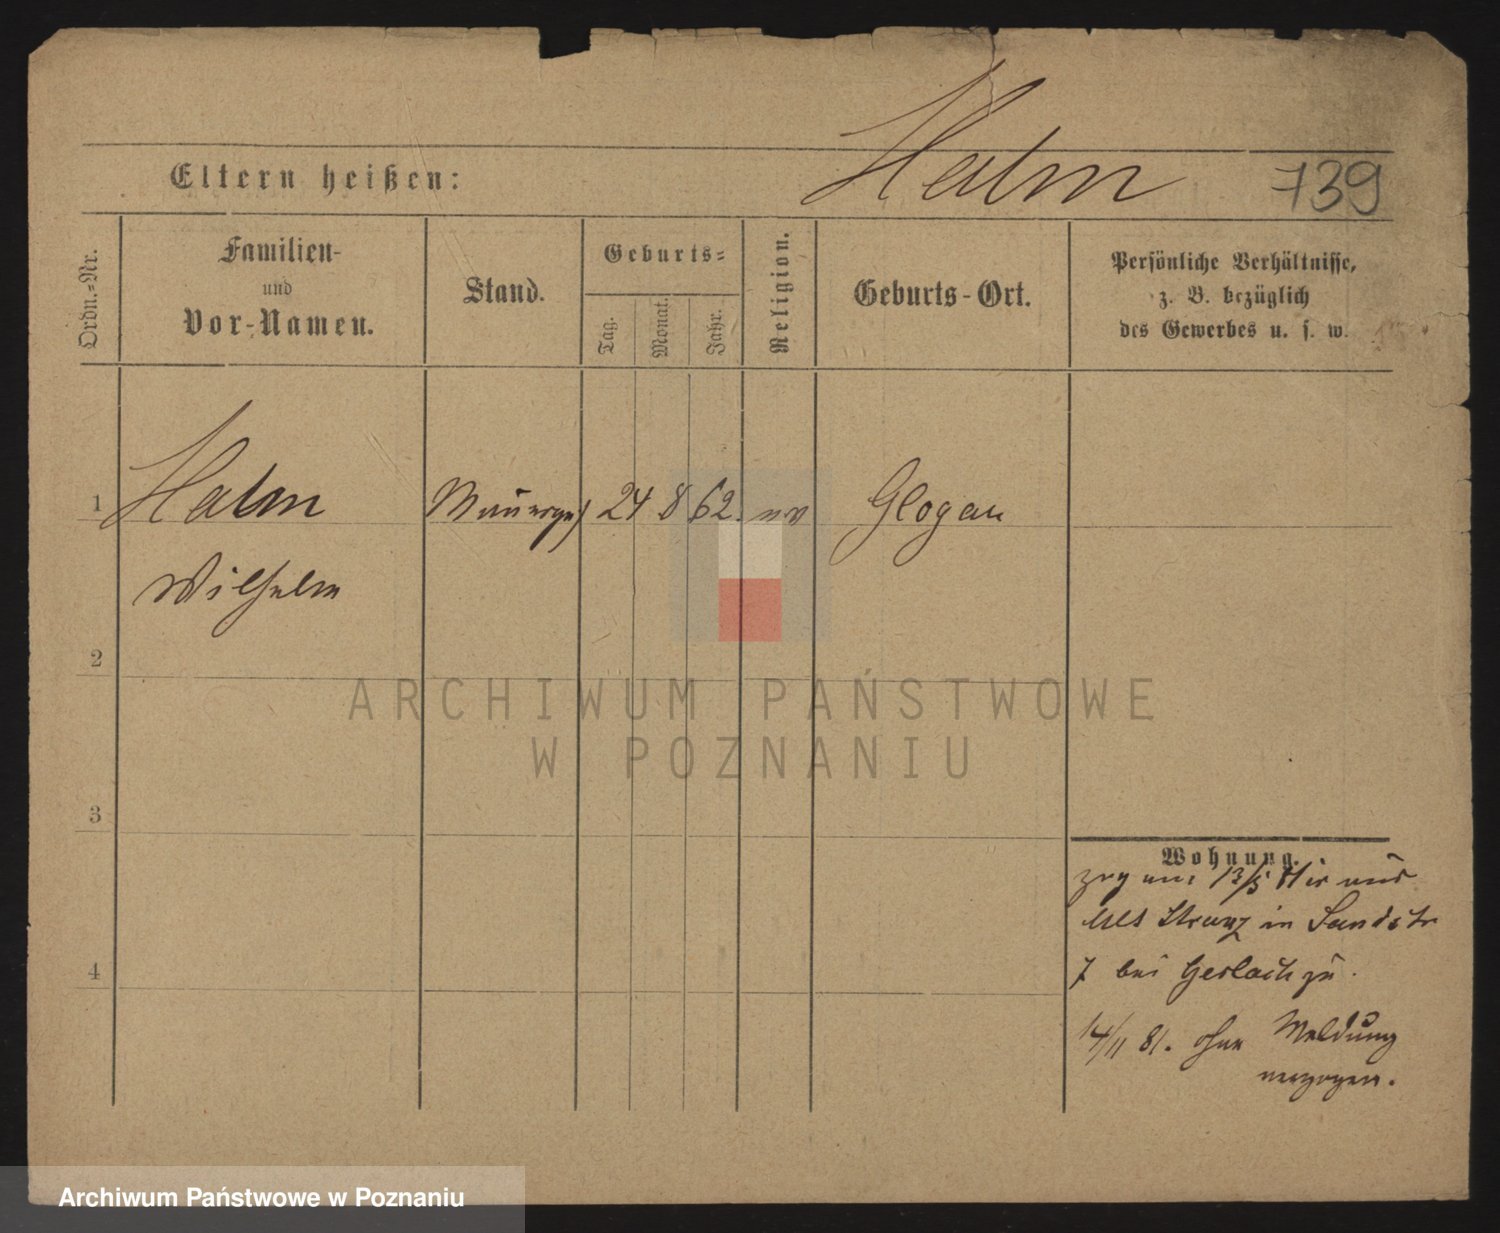 Halm 739
Eltern heißen:
Ordn.-Nr.
Familien-
und
Vor-Namen.
Stand.
Geburts-
Tag.
Monat.
Jahr.
Religion.
Geburts-Ort.
Persönliche Verhältnisse,
z. B. bezüglich
des Gewerbes u. s. w.
1 Halm Maurerges 24 8 62. ev Glogau
Wilhelm
2
3
4
Wohnung.
zog am 13/5 81 aus
in Sandstr
7 bei Gerlach zu.
14/11 81. ohne Meldung
verzogen.
ARCHIWUM PAŃSTWOWE
W POZNANIU
Archiwum Państwowe w Poznaniu